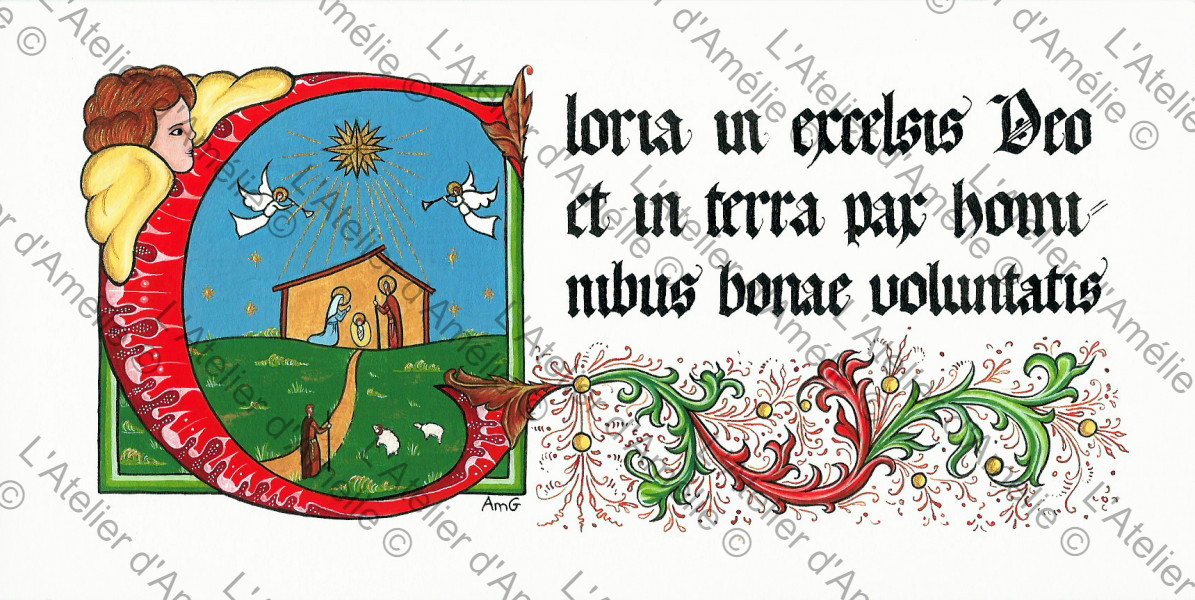 Gloria in excelsis Deo
et in terra pax homi=
nibus bonae voluntatis
AmG
L'Atelier d'Amélie ©